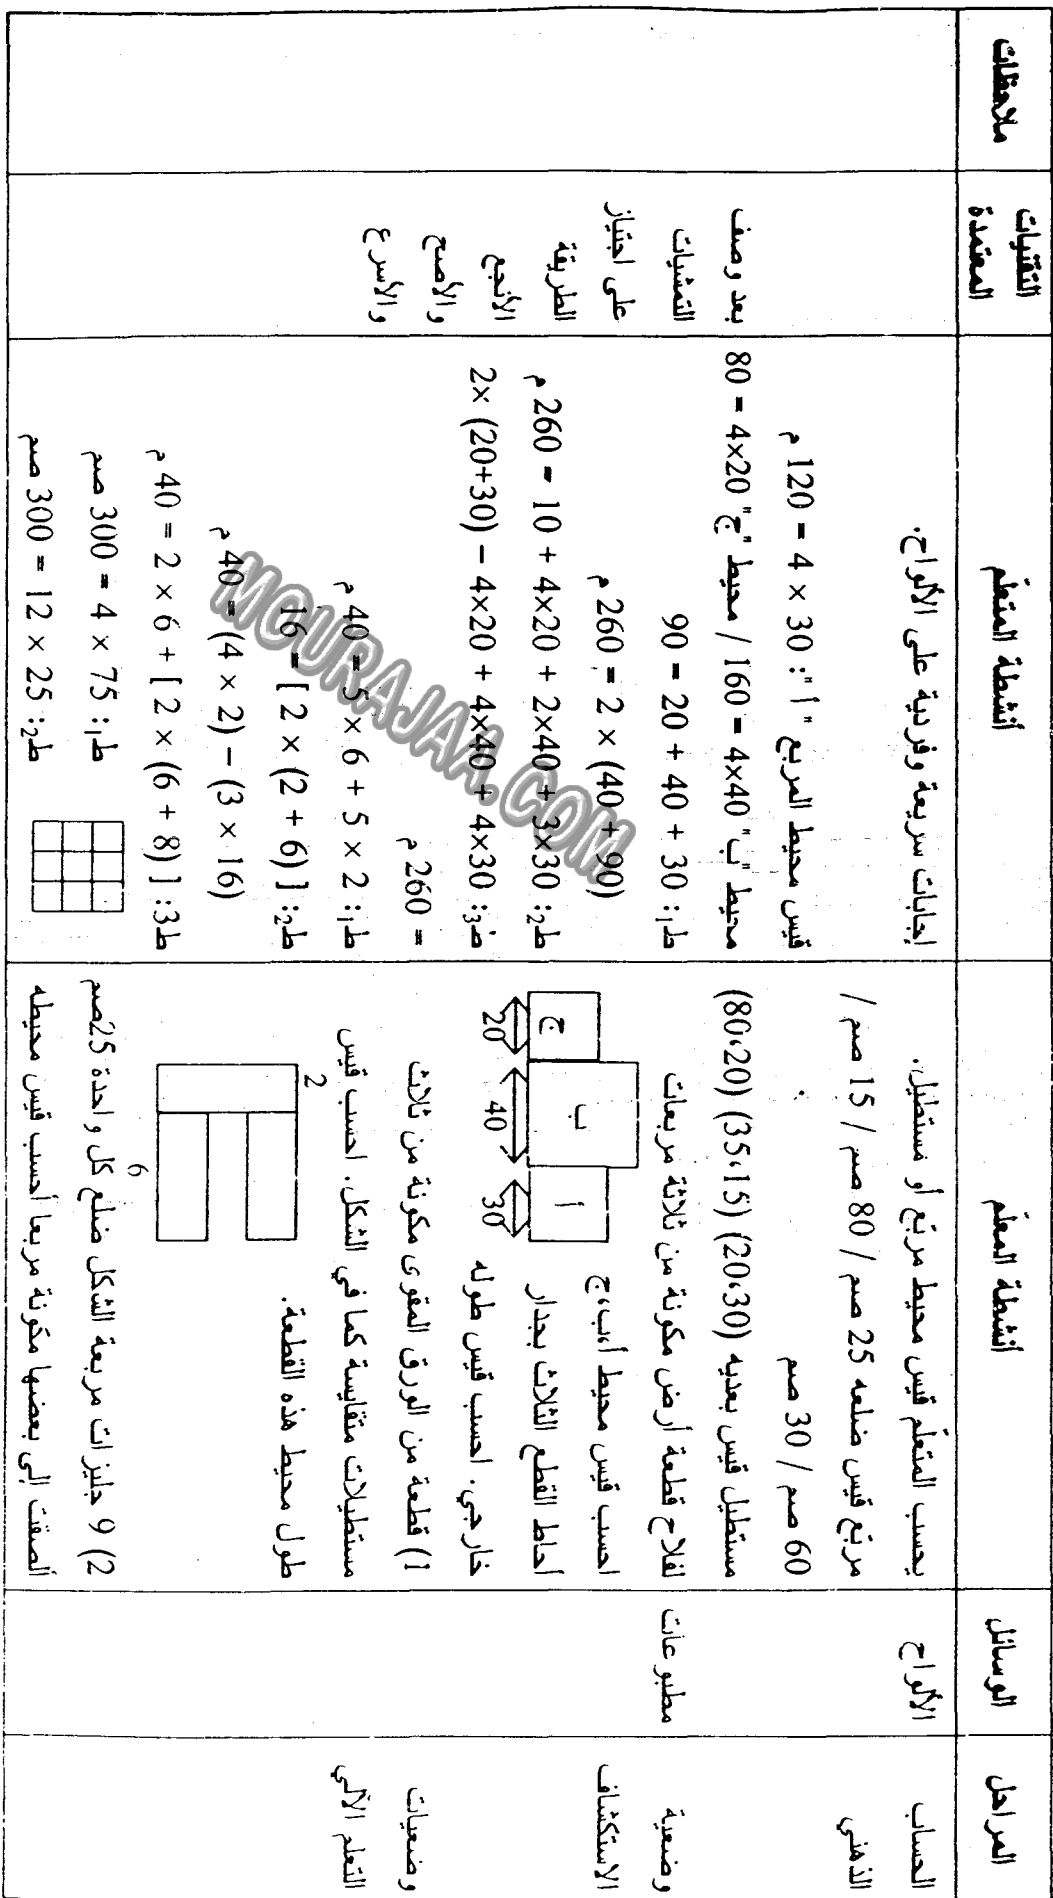 المراحل
الوسائل
أنشطة المعلّم
أنشطة المتعلّم
التقنيات
المعتمدة
ملاحظات
الحساب
الذهني
الألواح
يحسب المتعلّم قيس محيط مربّع أو مستطيل.
مربّع قيس ضلعه 25 صم / 80 صم / 15 صم /
60 صم / 30 صم
مستطيل قيس بعديه (20،30) (35،15) (80،20)
إجابات سريعة وفردية على الألواح.
وضعية
الاستكشاف
مطبوعات
لفلاح قطعة أرض مكونة من ثلاثة مربعات
ج
ب
أ
20
40
30
احسب قيس محيط أ،ب،ج
أحاط القطع الثلاث بجدار
خارجي. احسب قيس طوله
قيس محيط المربع "أ": 30 × 4 = 120 م
محيط "ب" 40×4 = 160 / محيط "ج" 20×4 = 80
ط1: 30 + 40 + 20 = 90
(90 + 40) × 2 = 260 م
ط2: 30×3 + 40×2 + 20×4 + 10 = 260 م
ط3: 30×4 + 40×4 + 20×4 – (30+20) ×2
= 260 م
بعد وصف
التمشيات
على اجتياز
الطريقة
الأنجع
والأصح
والأسرع
وضعيات
التعلم الآلي
1) قطعة من الورق المقوى مكونة من ثلاث
مستطيلات متقايسة كما في الشكل. احسب قيس
طول محيط هذه القطعة.
2
6
2) 9 جليزات مربعة الشكل ضلع كل واحدة 25صم
ألصقت إلى بعضها مكونة مربعا أحسب قيس محيطه
ط1: 2 × 5 + 6 × 5 = 40 م
ط2: [ (6 + 2) × 2 ] = 16
(16 × 3) – (2 × 4) = 40 م
ط3: [ (8 + 6) × 2 ] + 6 × 2 = 40 م
ط1: 75 × 4 = 300 صم
ط2: 25 × 12 = 300 صم
MOURAJAA.COM